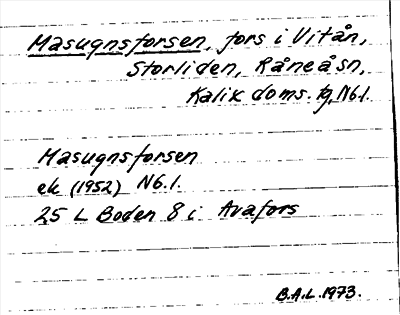 Masugnsforsen, fors i Vitån,
Storliden, Råneåsn,
Kalix doms. tg, Nb.l.
Masugnsforsen
ek (1952) Nb.l.
25 L Boden 8 i Avafors
B.A.L. 1973.